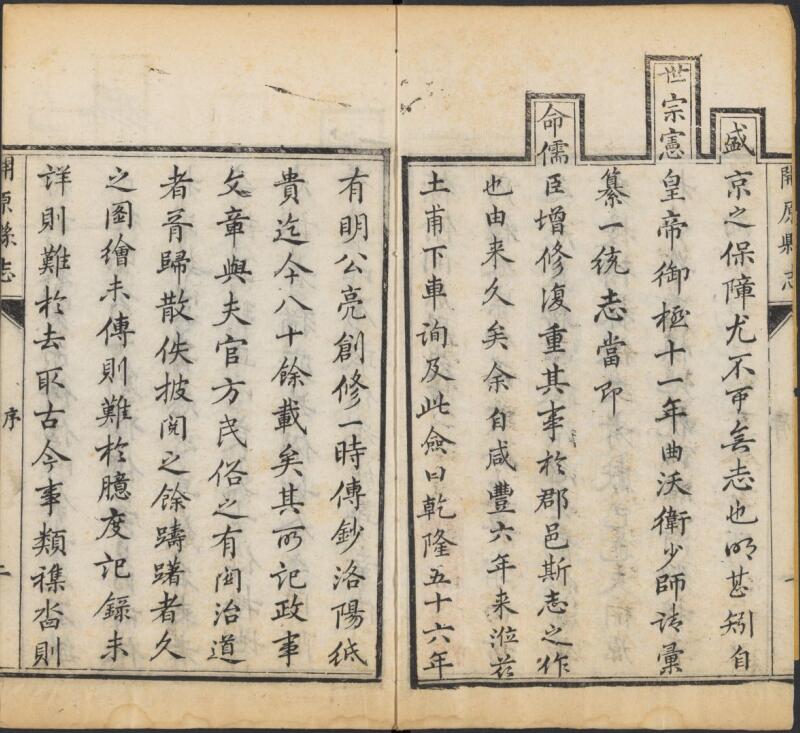 開原縣志
盛京之保障尤不可無志也明甚矧自
世宗憲皇帝御極十一年曲沃衛少師請彙
纂一統志當即
命儒臣增修復重其事於郡邑斯志之作
也由来久矣余自咸豐六年来涖茲
土甫下車詢及此僉曰乾隆五十六年
有明公亮創修一時傳鈔洛陽紙
貴迄今八十餘載矣其所記政事
文章與夫官方民俗之有関治道
者胥歸散佚披閲之餘躊躇者久
之圖繪未傳則難於臆度記錄未
詳則難於去取古今事類襍沓則
開原縣志 序 二